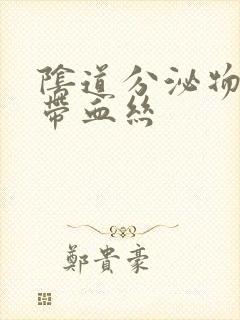 陰道分泌物
帶血絲
鄭貴豪